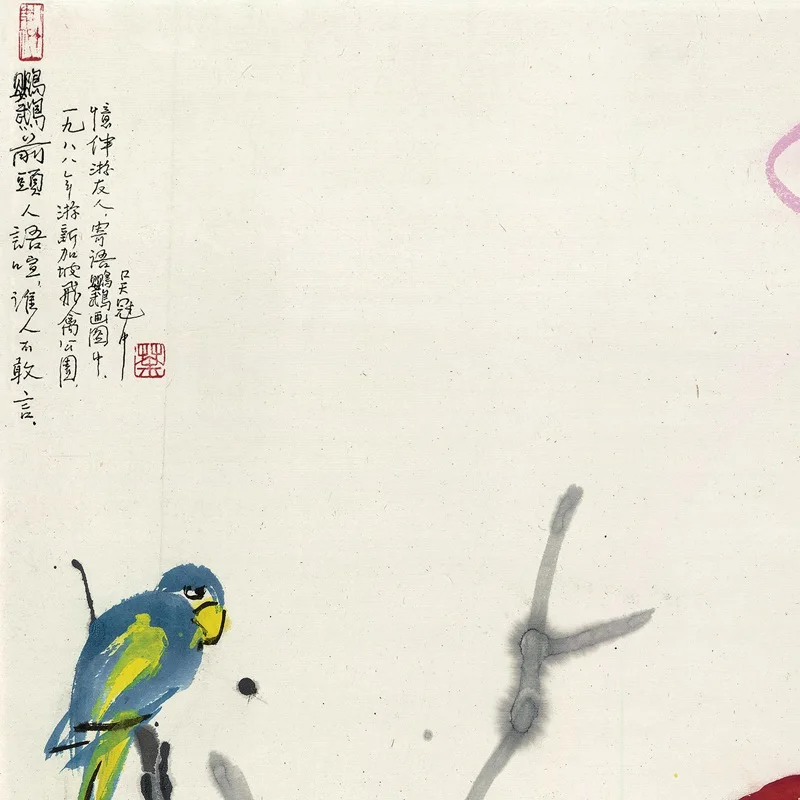 鸚鵡前頭人語喧，誰人不敢言．
一九八八年游新加坡飛禽公園，
憶伴游友人，寄語鸚鵡画图中．
吴冠中
荼